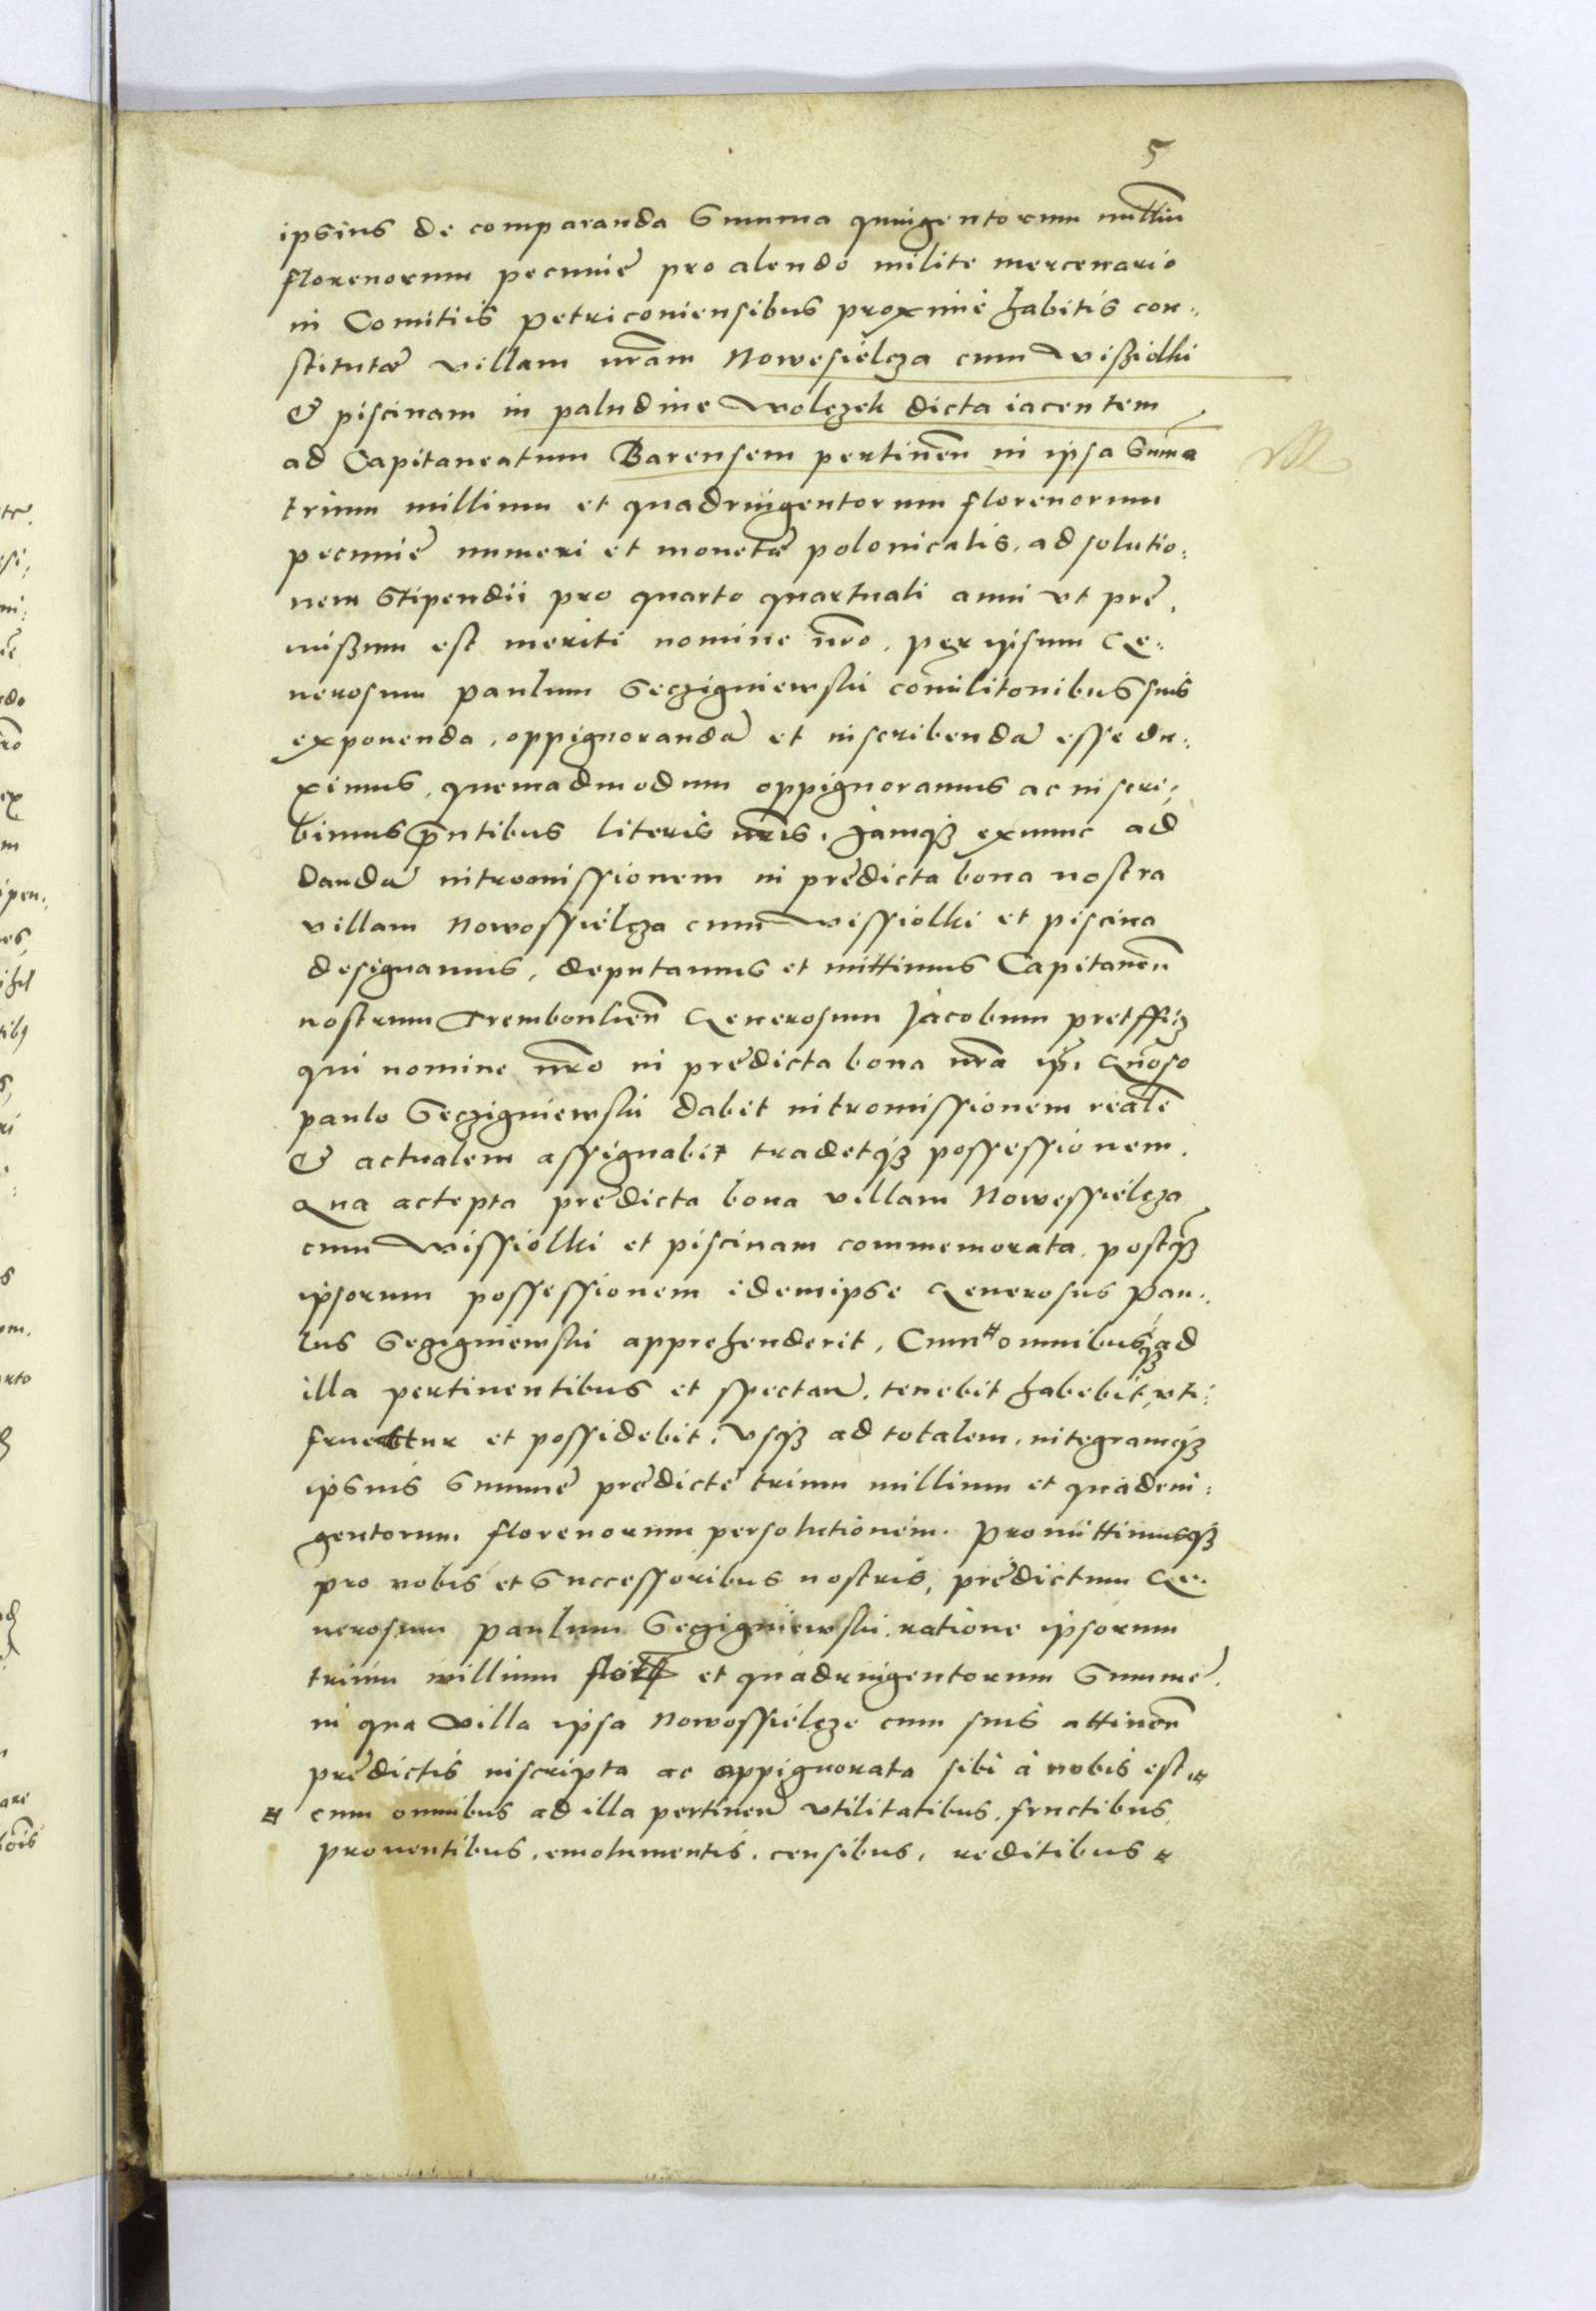 5
ipsius de comparanda Summa quingentorum milliu
florenorum pecunię pro alendo milite mercenario
in Comitiis petriconiensibus proxime habitis con„
stitutæ villam nr̄am Nowesielcza cum wißiolki
& piscinam in paludine wolczek dicta iacentem
ad Capitaneatum Barensem pertineñ in ipsa Sum̄a
trium millium et quadringentorum florenorum
pecunię numeri et monetæ polonicalis, ad solutio„
nem Stipendii pro quarto quartuali anni vt prę„
mißum est meriti nomine nr̄o, per ipsum Ge„
nerosum paulum Seczigniewski comilitonibus suis
exponenda, oppignoranda et inscribenda esse du„
ximus, quemadmodum oppignoramus ac inscri„
bimus p̄ntibus literis nr̄is, jamqȝ exnunc ad
danda intromissionem in prędicta bona nostra
villam Nowossielcza cum wissiolki et piscina
designamus, deputamus et mittimus Capitaneū
nostrum Trembowlieñ Generosum Jacobum pretffiz
qui nomine nr̄o in prędicta bona nr̄a ip̄i Gn̄oso
paulo Seczigniewski dabit intromissionem realē
& actualem assignabit tradetqȝ possessionem.
Qua accepta prędicta bona villam Nowessielcza
cum wissiolki et piscinam commemorata, postqȝ
ipsorum possessionem idemipse Generosus Pau„
lus Segigniewski apprehenderit, Cum # omnibusqȝ ad
illa pertinentibus et spectañ, tenebit habebit, vti„
fruetur et possidebit, vsqȝ ad totalem, integramqȝ
ipsius Summę prędictę trium millium et quadrin„
gentorum florenorum persolutionem. Promittimusqȝ
pro nobis et Successoribus nostris, prędictum Ge„
nerosum paulum Segigniewski ratione ipsorum
trium millium flor et quadringentorum Summę,
in qua villa ipsa Nowossielcze cum suis attineñ
prędictis inscripta ac oppignorata sibi à nobis est #
# cum omnibus ad illa pertineñ vtilitatibus, fructibus,
prouentibus, emolumentis, censibus, reditibus #